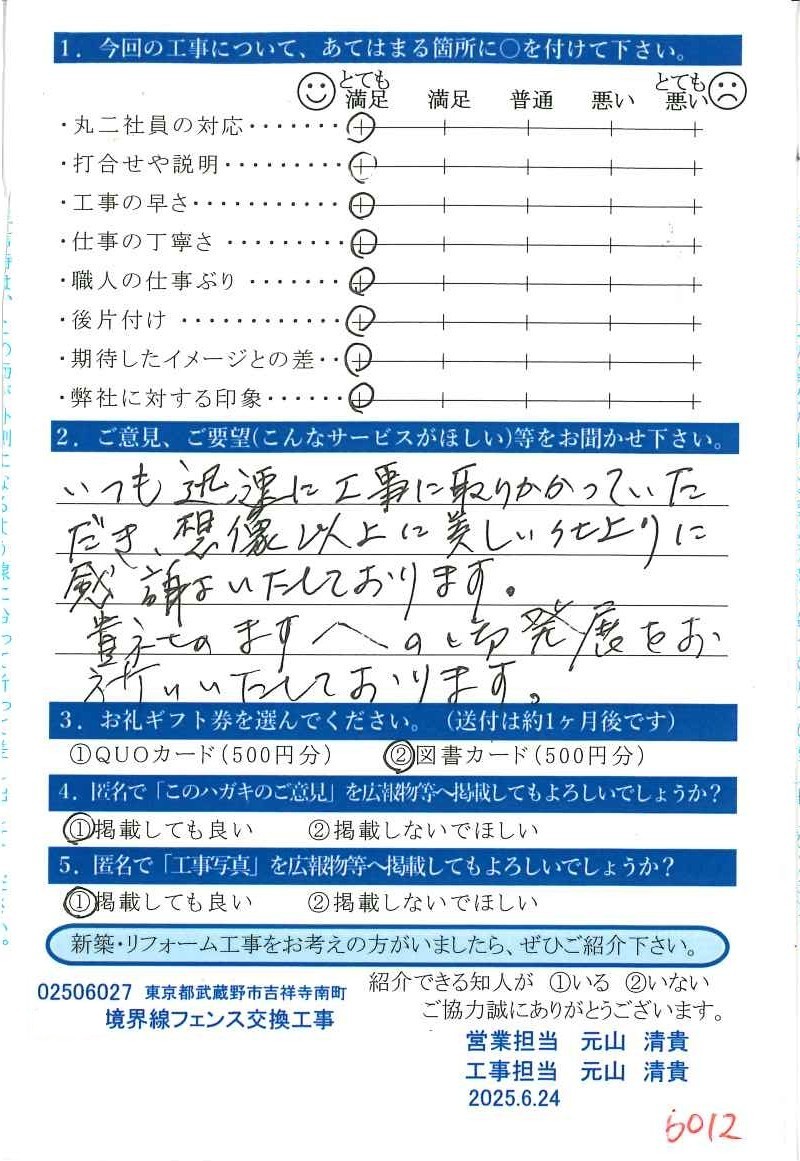 1．今回の工事について、あてはまる箇所に○を付けて下さい。
とても満足 満足 普通 悪い とても悪い
・丸二社員の対応・・・・・・・
・打合せや説明・・・・・・・・・
・工事の早さ・・・・・・・・・・・
・仕事の丁寧さ・・・・・・・・・
・職人の仕事ぶり・・・・・・・
・後片付け・・・・・・・・・・・・
・期待したイメージとの差・・
・弊社に対する印象・・・・・・
2．ご意見、ご要望(こんなサービスがほしい)等をお聞かせ下さい。
いつも迅速に工事に取りかかっていた
だき、想像以上に美しい仕上りに
感謝いたしております。
貴社のますますの御発展をお
祈りいたしております。
3．お礼ギフト券を選んでください。（送付は約1ヶ月後です）
①QUOカード(500円分) ②図書カード(500円分)
4．匿名で「このハガキのご意見」を広報物等へ掲載してもよろしいでしょうか？
①掲載しても良い ②掲載しないでほしい
5．匿名で「工事写真」を広報物等へ掲載してもよろしいでしょうか？
①掲載しても良い ②掲載しないでほしい
新築・リフォーム工事をお考えの方がいましたら、ぜひご紹介下さい。
紹介できる知人が ①いる ②いない
ご協力誠にありがとうございます。
02506027 東京都武蔵野市吉祥寺南町
境界線フェンス交換工事
営業担当 元山 清貴
工事担当 元山 清貴
2025.6.24
5012